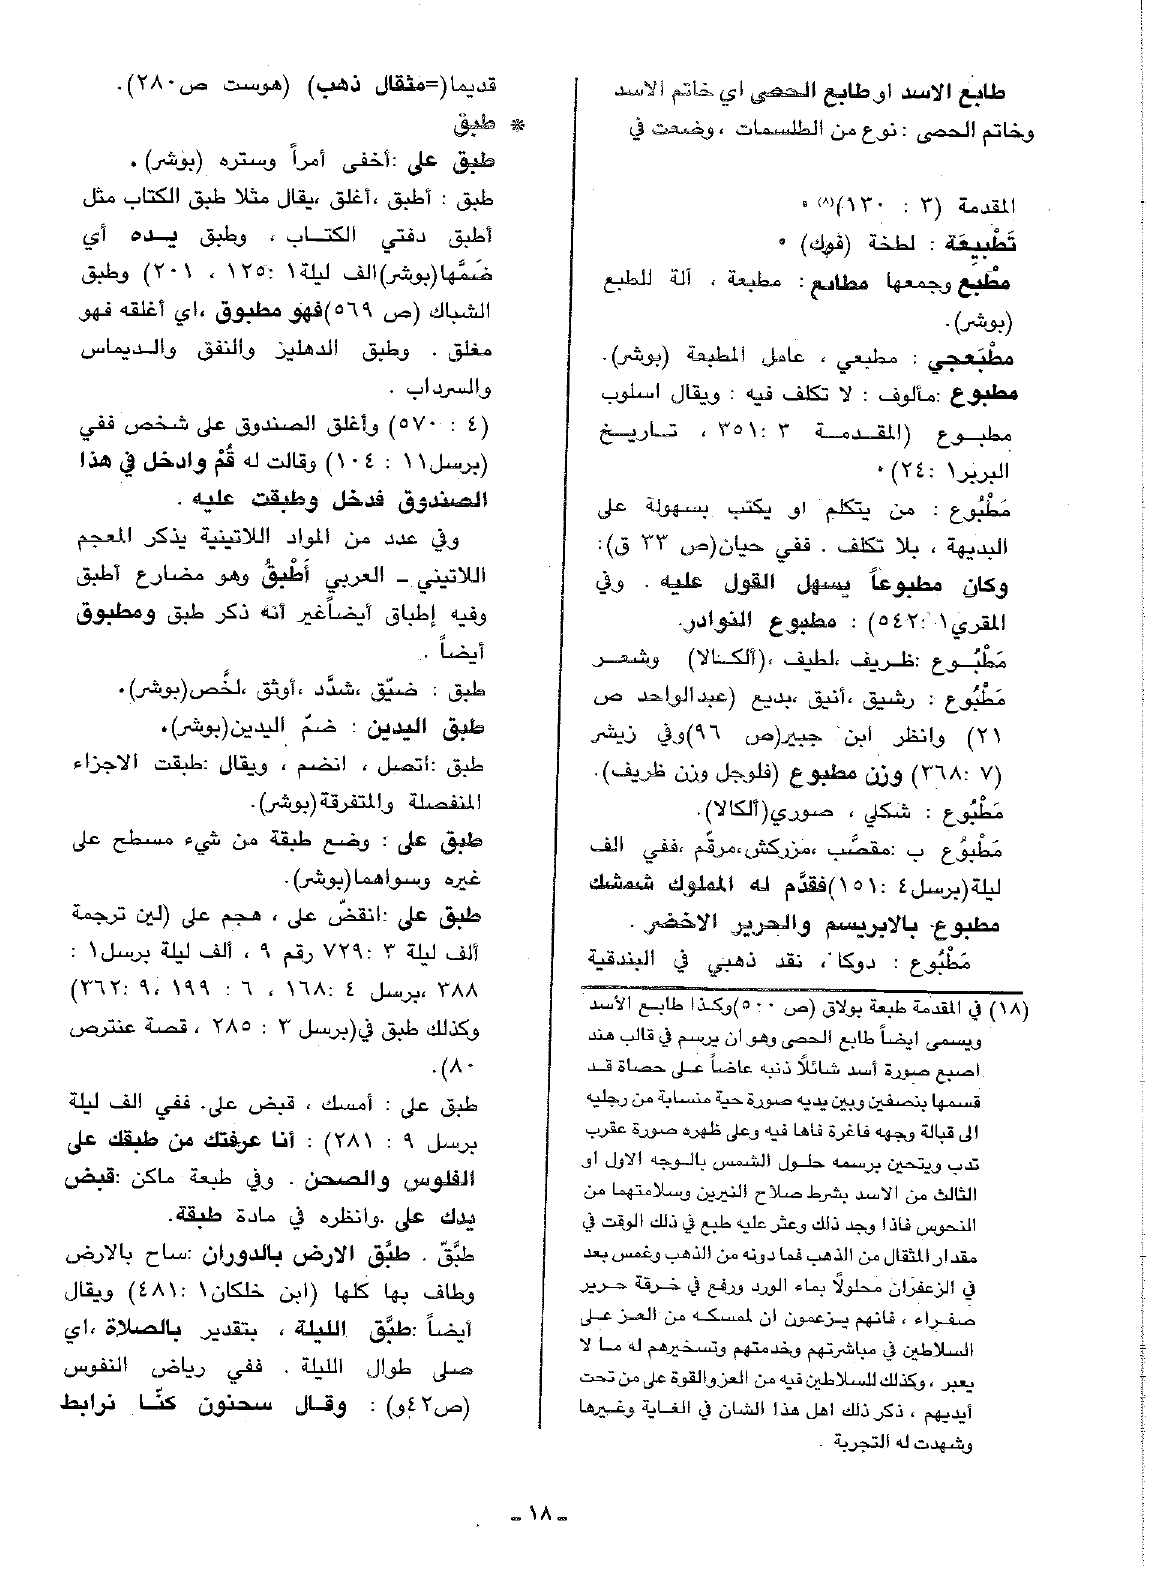 طابع الاسد او طابع الحصى اي خاتم الاسد
وخاتم الحصى : نوع من الطلسمات ، وضعت في
المقدمة (٣ : ١٣٠)(٨) .
تَطْبِيعَة : لطخة (فوك) .
مطْبع وجمعها مطابع : مطبعة ، آلة للطبع
(بوشر).
مطْبَعجي : مطبعي ، عامل المطبعة (بوشر).
مطبوع :مألوف : لا تكلف فيه : ويقال اسلوب
مطبوع (المقدمة ٣ :٣٥١ ، تاريخ
البربر١ :٢٤).
مَطْبُوع : من يتكلم او يكتب بسهولة على
البديهة ، بلا تكلف . ففي حيان(ص ٣٣ ق):
وكان مطبوعاً يسهل القول عليه . وفي
المقري١ :٥٤٢) : مطبوع النوادر.
مَطْبُوع :ظريف ،لطيف ،(ألكالا) وشعر
مَطْبُوع : رشيق ،أنيق ،بديع (عبدالواحد ص
٢١) وانظر ابن جبير(ص ٩٦)وفي زيشر
(٧ :٣٦٨) وزن مطبوع (فلوجل وزن ظريف).
مَطْبُوع : شكلي ، صوري(ألكالا).
مَطْبُوع ب :مقصَّب ،مزركش،مرقَّم ،ففي الف
ليلة(برسل٤ :١٥١)فقدَّم له المملوك شمشك
مطبوع بالابريسم والحرير الاخضر .
مَطْبُوع : دوكا ، نقد ذهبي في البندقية
(١٨) في المقدمة طبعة بولاق (ص ٥٠٠)وكذا طابع الأسد
ويسمى ايضاً طابع الحصى وهو ان يرسم في قالب هند
اصبع صورة أسد شائلاً ذنبه عاضاً على حصاة قد
قسمها بنصفين وبين يديه صورة حية منسابة من رجليه
الى قبالة وجهه فاغرة فاها فيه وعلى ظهره صورة عقرب
تدب ويتحين برسمه حلول الشمس بالوجه الاول او
الثالث من الاسد بشرط صلاح النيرين وسلامتهما من
النحوس فاذا وجد ذلك وعثر عليه طبع في ذلك الوقت في
مقدار المثقال من الذهب فما دونه من الذهب وغمس بعد
في الزعفران محلولاً بماء الورد ورفع في خرقة حرير
صفراء ، فانهم يزعمون ان لممسكه من العز على
السلاطين في مباشرتهم وخدمتهم وتسخيرهم له ما لا
يعبر ، وكذلك للسلاطين فيه من العزوالقوة على من تحت
أيديهم ، ذكر ذلك اهل هذا الشان في الغاية وغيرها
وشهدت له التجربة .
قديما(=مثقال ذهب) (هوست ص٢٨٠).
* طبق
طبق على :أخفى أمراً وستره (بوشر) .
طبق : أطبق ،أغلق ،يقال مثلا طبق الكتاب مثل
أطبق دفتي الكتاب ، وطبق يده أي
ضَمَّها(بوشر)الف ليلة١ :١٢٥ ، ٢٠١) وطبق
الشباك (ص ٥٦٩)فهو مطبوق ،اي أغلقه فهو
مغلق . وطبق الدهليز والنفق والديماس
والسرداب .
(٤ : ٥٧٠) وأغلق الصندوق على شخص ففي
(برسل١١ : ١٠٤) وقالت له قُمْ وادخل في هذا
الصندوق فدخل وطبقت عليه .
وفي عدد من المواد اللاتينية يذكر المعجم
اللاتيني – العربي أَطْبقُ وهو مضارع أطبق
وفيه إطباق أيضاًغير أنه ذكر طبق ومطبوق
أيضاً .
طبق : ضيّق ،شدَّد ،أوثق ،لخَّص(بوشر).
طبق اليدين : ضمّ اليدين(بوشر).
طبق :أتصل ، انضم ، ويقال :طبقت الاجزاء
المنفصلة والمتفرقة(بوشر).
طبق على : وضع طبقة من شيء مسطح على
غيره وسواهما(بوشر).
طبق على :انقضّ على ، هجم على (لين ترجمة
ألف ليلة ٣ :٧٢٩ رقم ٩ ، ألف ليلة برسل١ :
٣٨٨ ،برسل ٤ :١٦٨ ، ٦ : ١٩٩ ،٩ :٣٦٢)
وكذلك طبق في(برسل ٣ : ٢٨٥ ، قصة عنترص
٨٠).
طبق على : أمسك ، قبض على. ففي الف ليلة
برسل ٩ : ٢٨١) : أنا عرفتك من طبقك على
الفلوس والصحن . وفي طبعة ماكن :قبض
يدك على .وانظره في مادة طبقة.
طبَّق . طبَّق الارض بالدوران :ساح بالارض
وطاف بها كلها (ابن خلكان١ :٤٨١) ويقال
أيضاً :طبَّق الليلة ، بتقدير بالصلاة ،اي
صلى طوال الليلة . ففي رياض النفوس
(ص٤٢و) : وقال سحنون كنّا نرابط
ـ ١٨ ـ